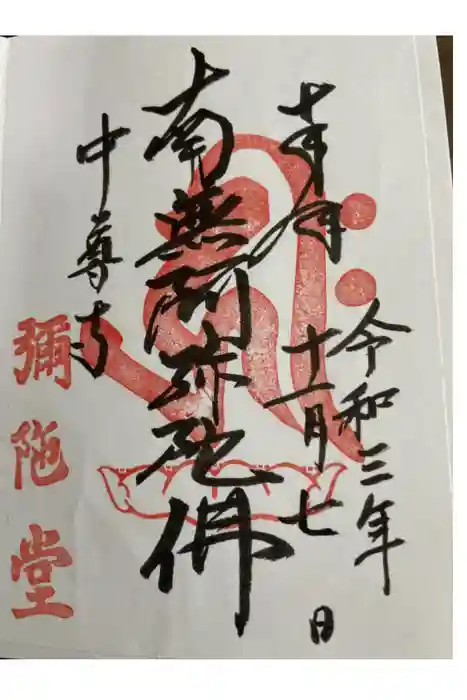 奉拝
令和三年
十一月七日
南無阿弥陀佛
中尊寺
彌陀堂